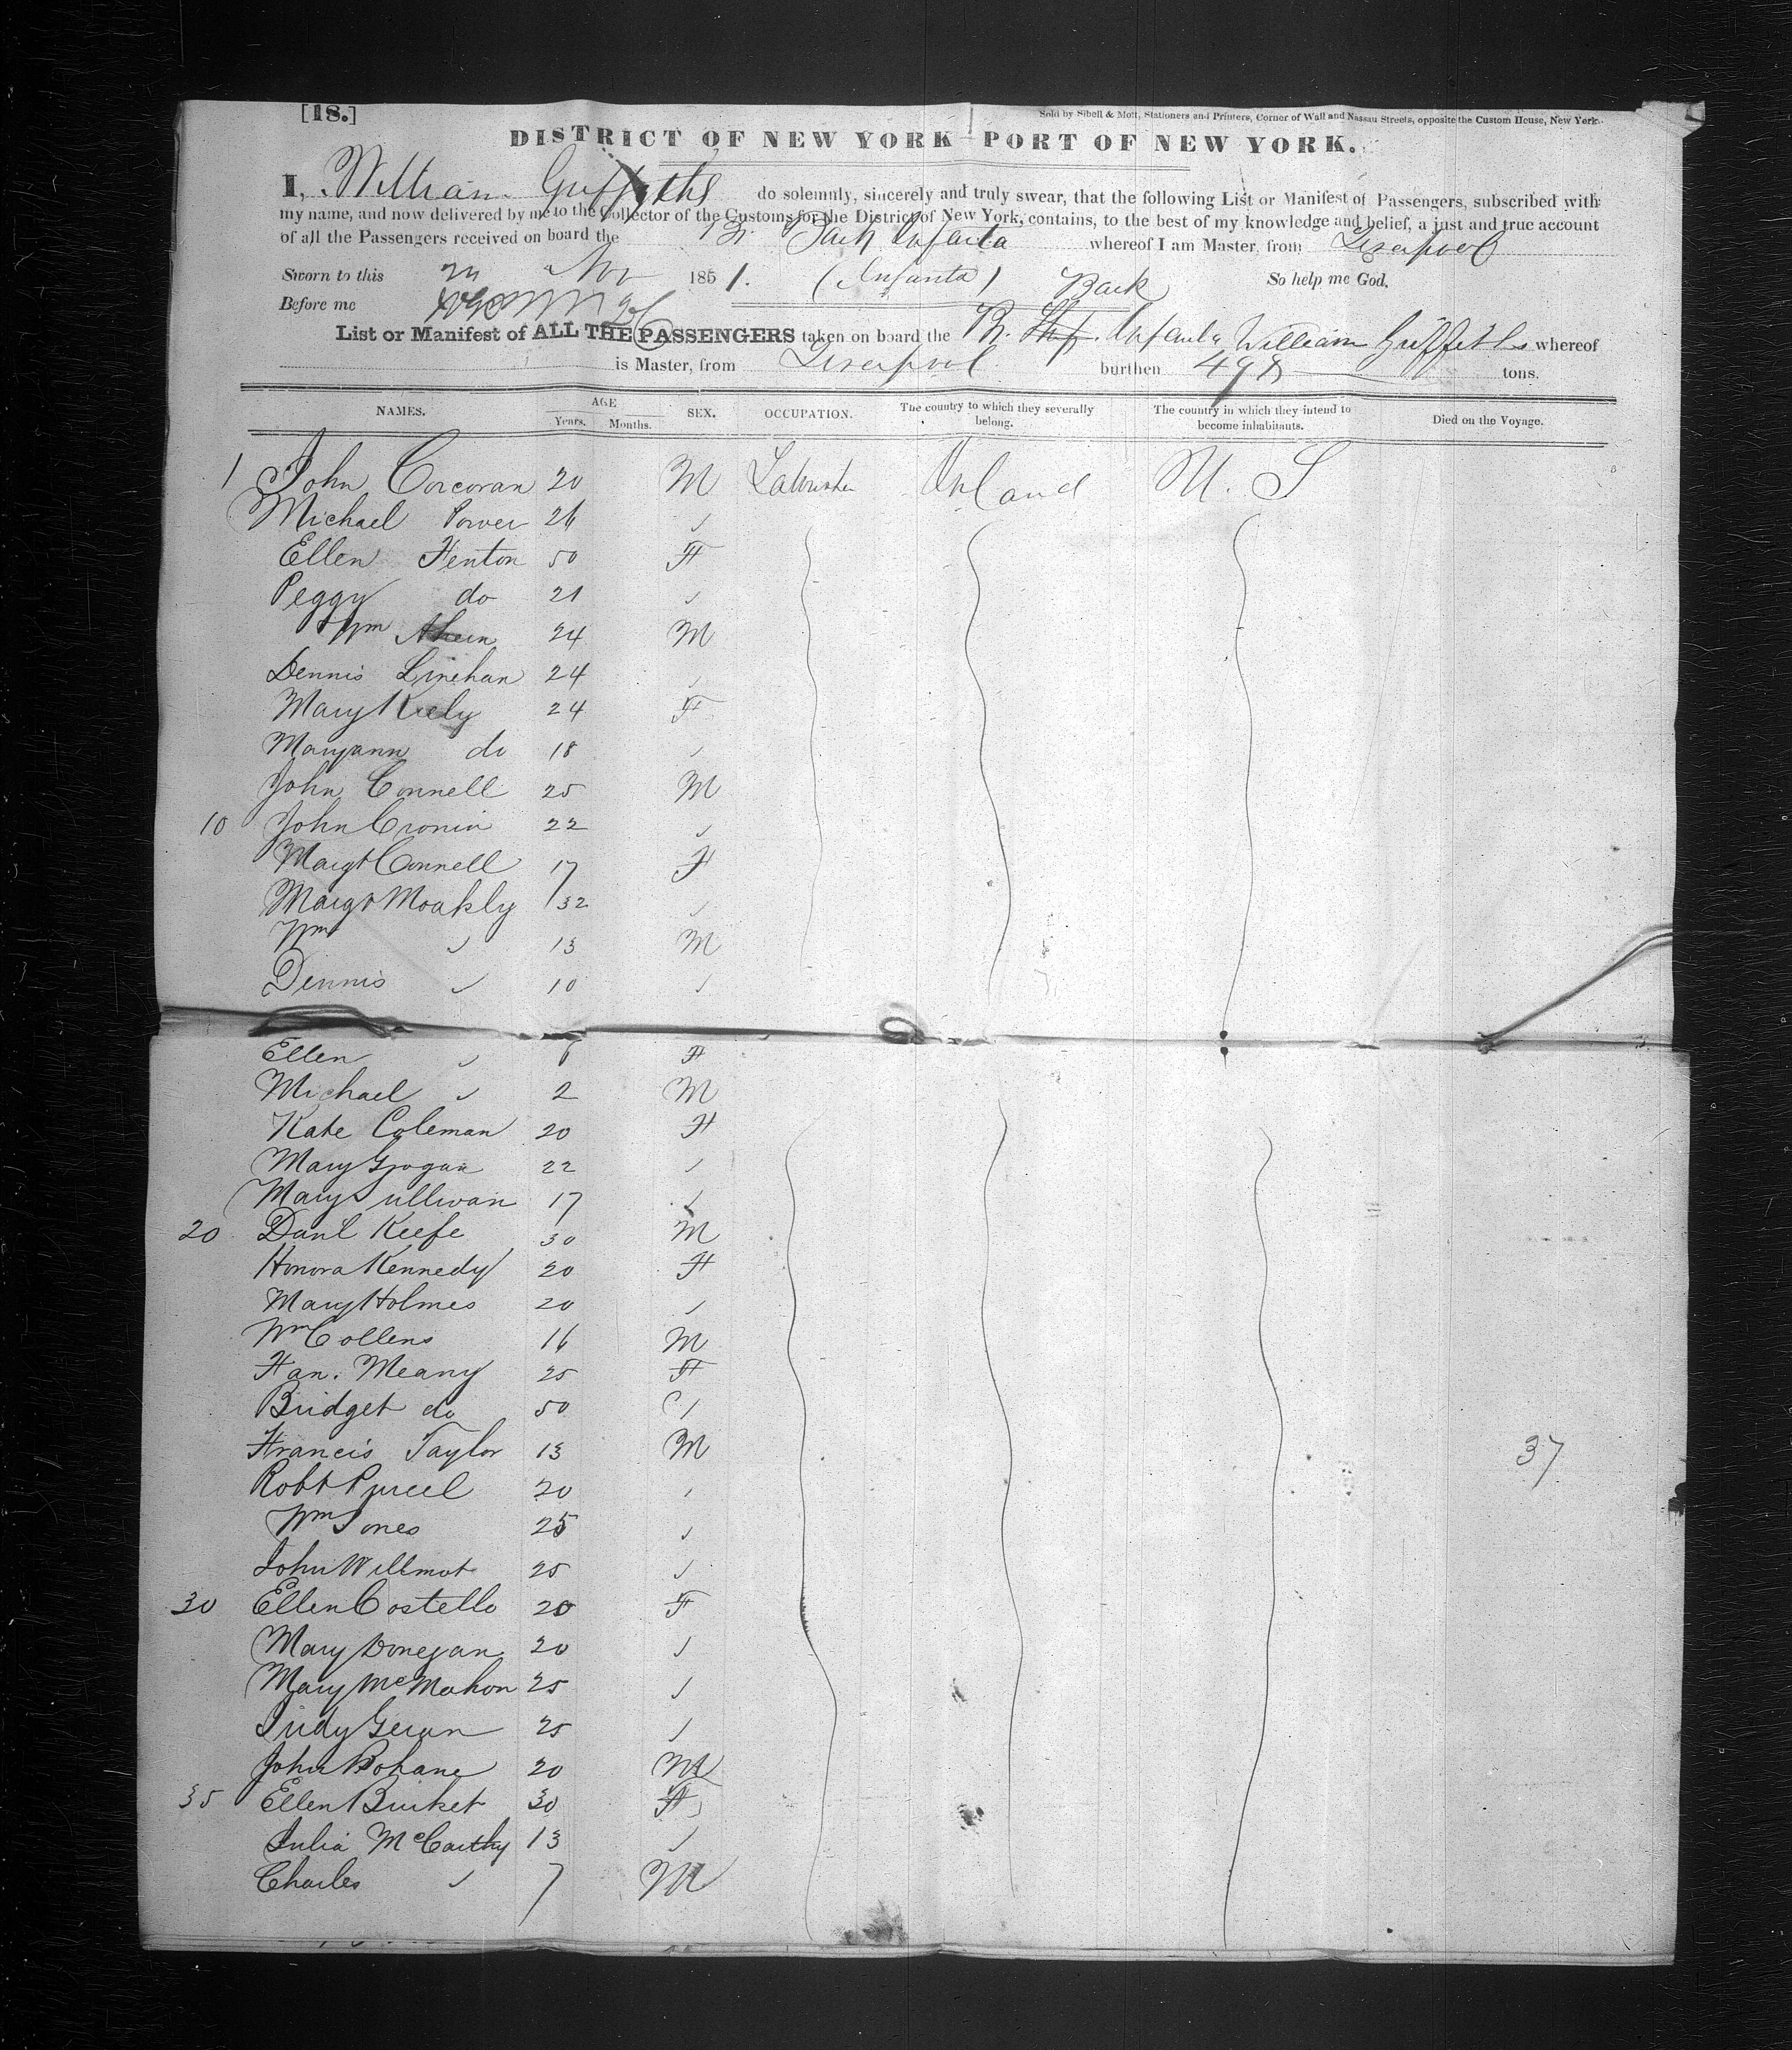 [18.]
Sold by Sibell & Mott, Stationers and Printers, Corner of Wall and Nassau Streets, opposite the Custom House, New York.
DISTRICT OF NEW YORK—PORT OF NEW YORK.
I, William Griffiths do solemnly, sincerely and truly swear, that the following List or Manifest of Passengers, subscribed with
my name, and now delivered by me to the Collector of the Customs for the District of New York, contains, to the best of my knowledge and belief, a just and true account
of all the Passengers received on board the Br. Bark Infanta whereof I am Master, from Liverpool
Sworn to this 24 Nov 1851. (Infanta) Bark So help me God,
Before me
List or Manifest of ALL THE PASSENGERS taken on board the Br. Ship. Infanta William Griffiths whereof
is Master, from Liverpool burthen 498 tons.
NAMES. AGE SEX. OCCUPATION. The country to which they severally belong. The country in which they intend to become inhabitants. Died on the Voyage.
Years. Months.
1 John Corcoran 20 M Ireland U. S
Michael Power 26 ✓
Ellen Fenton 50 F
Peggy do 21 ✓
Wm Ahern 24 M
Dennis Linehan 24 ✓
Mary Kiely 24 F
Maryann do 18 ✓
John Connell 25 M
10 John Cronin 22 ✓
Margt Connell 17 F
Margt Moakly 32 ✓
Wm ✓ 13 M
Dennis ✓ 10 ✓
Ellen ✓ F
Michael ✓ 2 M
Kate Coleman 20 F
Mary Grogan 22 ✓
Mary Sullivan 17 ✓
20 Danl Keefe 30 M
Honora Kennedy 20 F
Mary Holmes 20 ✓
Wm Collens 16 M
Han. Meany 25 F
Bridget do 50 ✓
Francis Taylor 13 M 37
Robt Purcel 20 ✓
Wm Jones 25 ✓
John Willmot 25 ✓
30 Ellen Costello 20 F
Mary Donegan 20 ✓
Mary McMahon 25 ✓
Judy Geran 25 ✓
John Bohane 20 M
35 Ellen Burket 30 F
Julia McCarthy 13 ✓
Charles ✓ 7 M